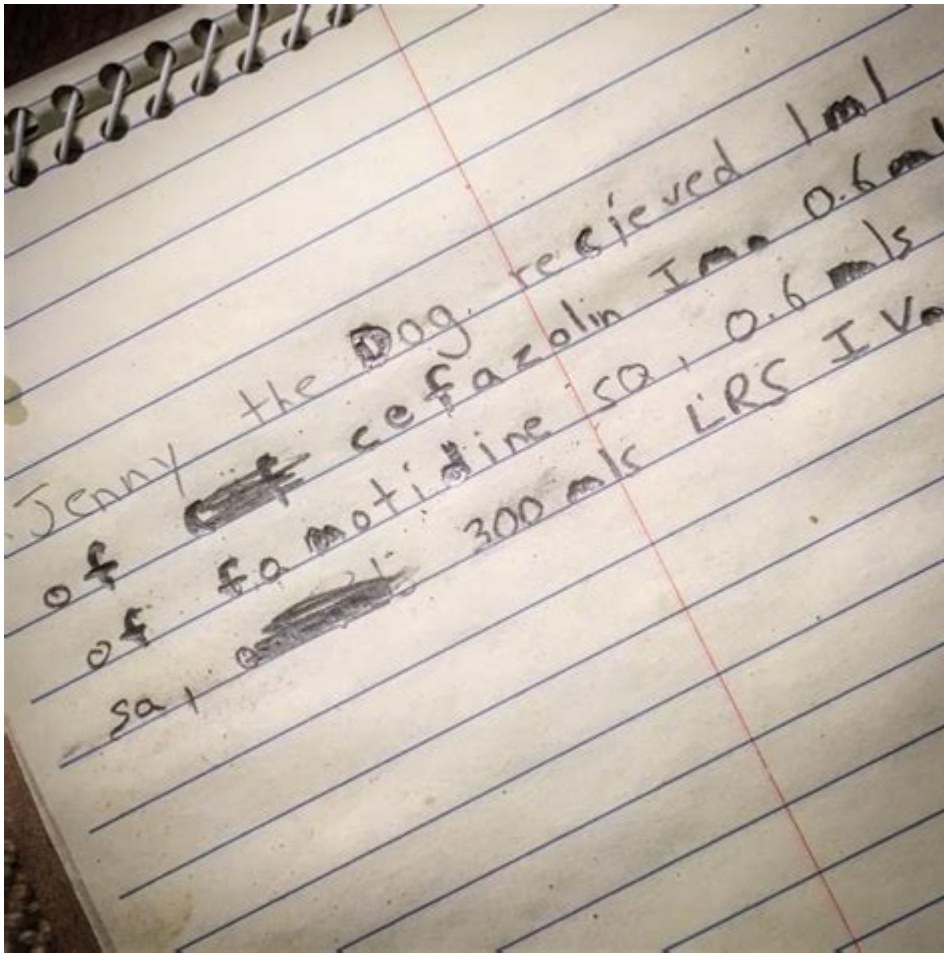 Jenny the Dog. recieved 1ml
of cefazolin Im. 0.6 ml
of famotidine SQ, 0.6 mls
sq, 300 mls LRS IV.